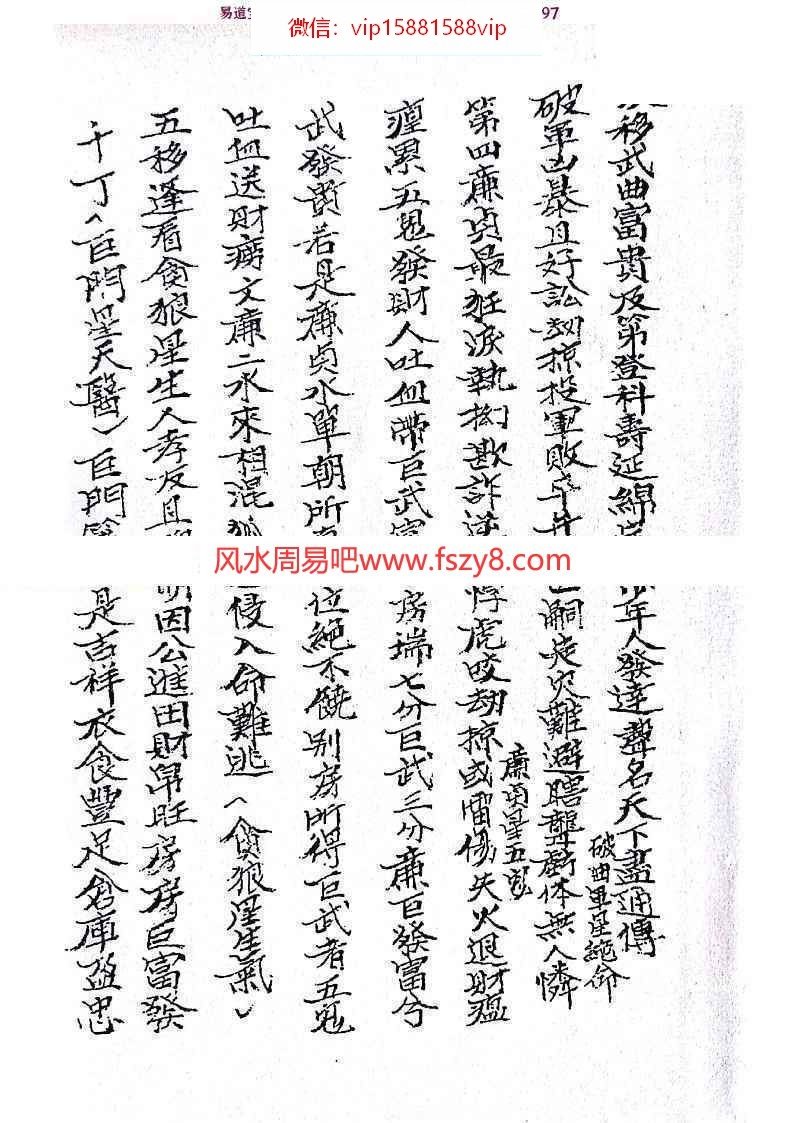 易道
97
微信：vip15881588vip
移武曲富貴及第登科壽延綿
年人發達聲名天下盡通傳
破曲軍星絶命
破軍凶暴且好訟刼掠投軍敗
嗣 災難避瞎聾 体無人憐
第四廉貞最狂 執拗欺詐
悖虎咬劫掠或雷傷失火退財瘟
廉貞星五鬼
累五鬼發財人吐血帶巨武
房瑞七分巨武三分廉巨發富兮
武發貴若是廉貞水單朝所
位絕不饒别房所得巨武者五鬼
吐血送財癆文廉二水來相混狐
侵入命難逃（貪狼星生氣）
五移逢看貪狼星生人孝友且
明因公進田財帛旺房房巨富發
千丁（巨門星天醫）巨門
是吉祥衣食豐足倉庫盈忠
风水周易吧www.fszy8.com